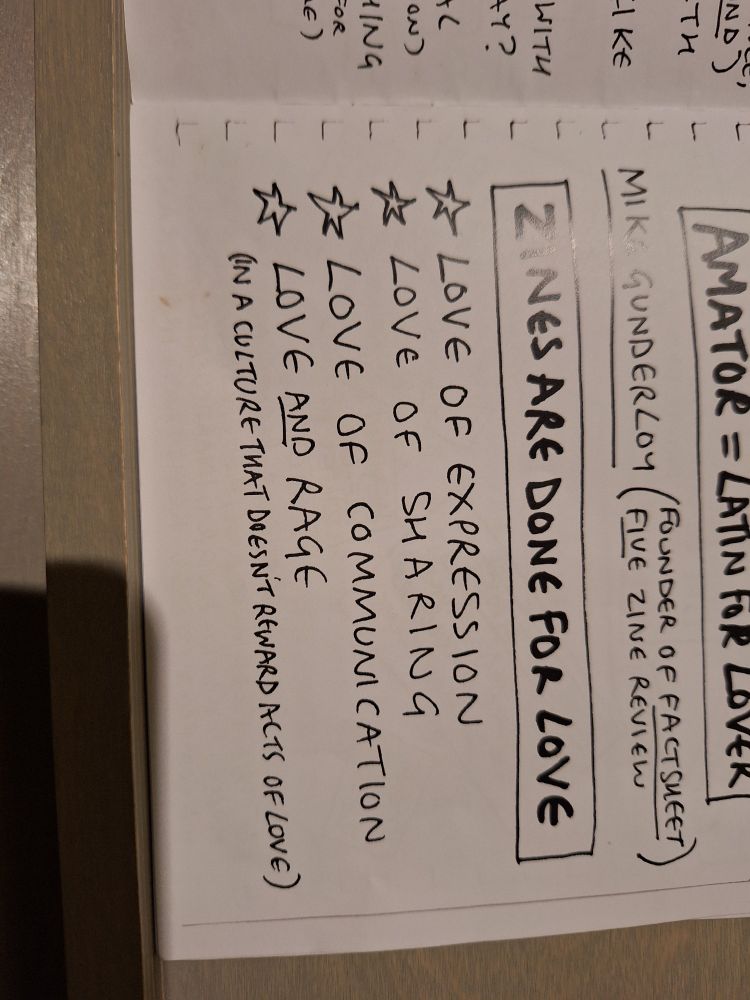 ND)
TH
LIKE
WITH
AY?
AL
ON)
HING
FOR
E)
AMATOR = LATIN FOR LOVER
MIKE GUNDERLOY (FOUNDER OF FACTSHEET
FIVE ZINE REVIEW)
ZINES ARE DONE FOR LOVE
☆ LOVE OF EXPRESSION
☆ LOVE OF SHARING
☆ LOVE OF COMMUNICATION
☆ LOVE AND RAGE
(IN A CULTURE THAT DOESN'T REWARD ACTS OF LOVE)